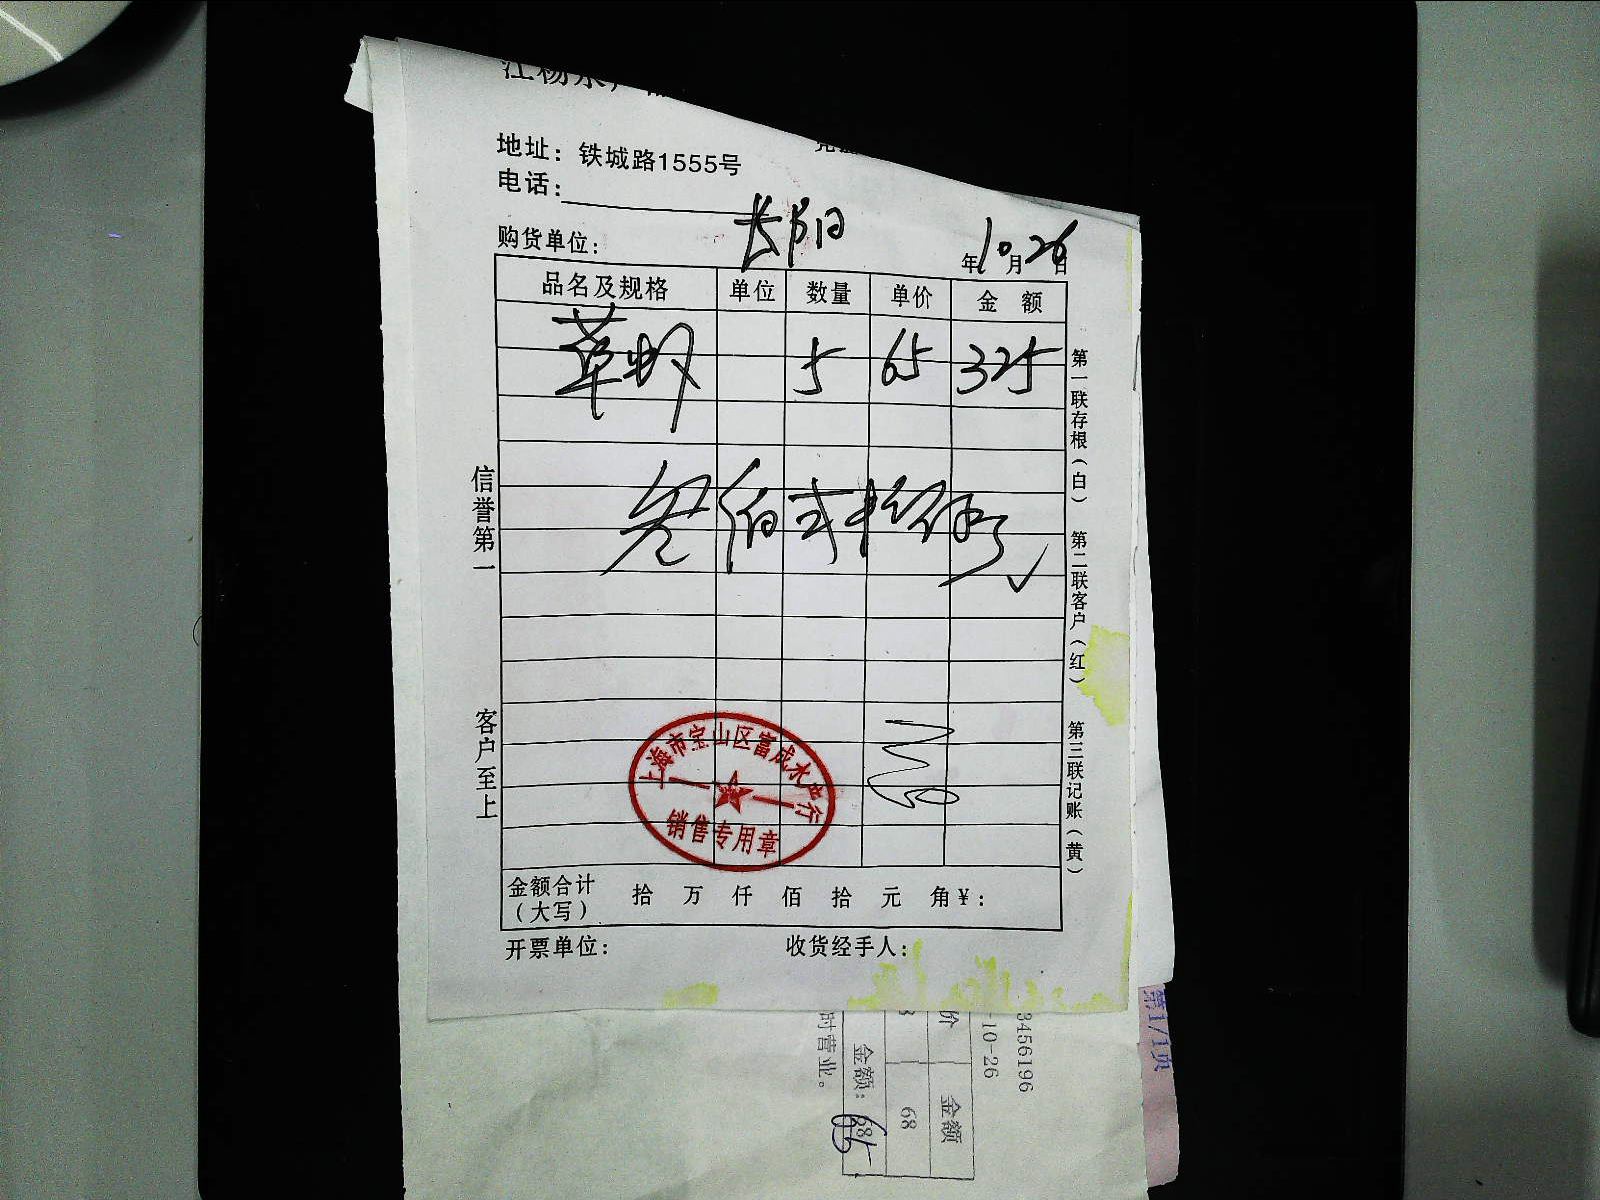 江杨水产
地址：铁城路1555号
电话：
购货单位： 长阳 年10月26日
品名及规格 单位 数量 单价 金额
草虾 5 65 325
叁佰弍拾伍
信誉第一
客户至上
第一联存根（白） 第二联客户（红） 第三联记账（黄）
上海市宝山区富成水产行
销售专用章
金额合计（大写） 拾 万 仟 佰 拾 元 角 ¥：
开票单位： 收货经手人：
3456196
-10-26
价 金额
68
金额： 68
时营业。
第1/1页